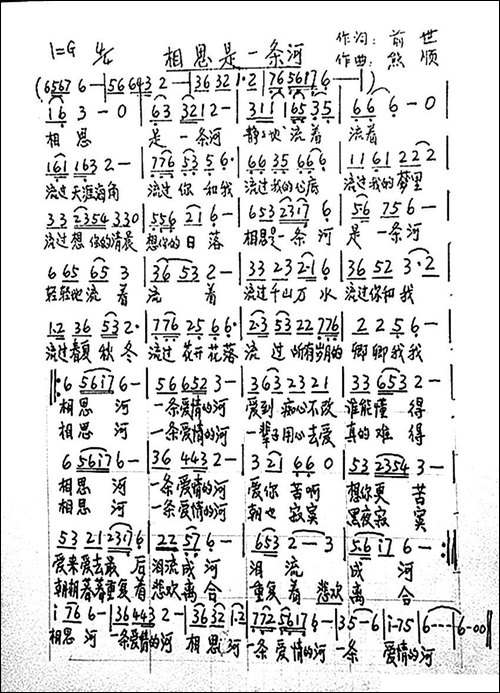 1=G 4/4 相思是一条河 作词:前世
作曲:熊顺
(6567 6-|56 6443 2-|36 32 1·2|76 5617 6-|)
16 3-0|63 3212-|311 165 35|66 6-0
相思 是一条河 静静地流着 流着
161 163 2-|776 53 5 6·|66 35 666|11 61 222
流过天涯海角 流过你和我 流过我的心底 流过我的梦里
33 2354 330|556 21 6-|653 2317 6|56 75 6-
流过想你的清晨 想你的日落 相思是一条河 是一条河
6 65 65 3|36 53 2-|33 23 216|36 52 3·2
轻轻地流着 流着 流过千山万水 流过你和我
12 36 532·|776 25 66·|23 53 22 776|2 25 6-
流过春夏秋冬 流过花开花落 流过所有岁月的 卿卿我我
‖:6 56i7 6-|56 652 3-|363 2321|33 653 2-
相思河 一条爱情的河 爱到痴心不改 谁能懂得
相思河 一条爱情的河 一辈子用心去爱 真的难得
6 56i7 6-|36 443 2-|3 21 66 0|53 2354 3-
相思河 一条爱情的河 爱你苦啊 想你更苦
相思河 一条爱情的河 朝也寂寞 黑夜寂寞
53 21 2317 6|22 57 6-|653 2-3|56 i7 6-:‖
爱来爱去最后 泪流成河 泪流成河
朝朝暮暮重复着 悲欢离合 重复着悲欢离合
i 76 6-|36 443 2-|36 32 1·2|772 5617 6-|35-6|i-75|6---|6-00‖
相思河 一条爱情的河 相思河 一条爱情的河 一条爱情的河